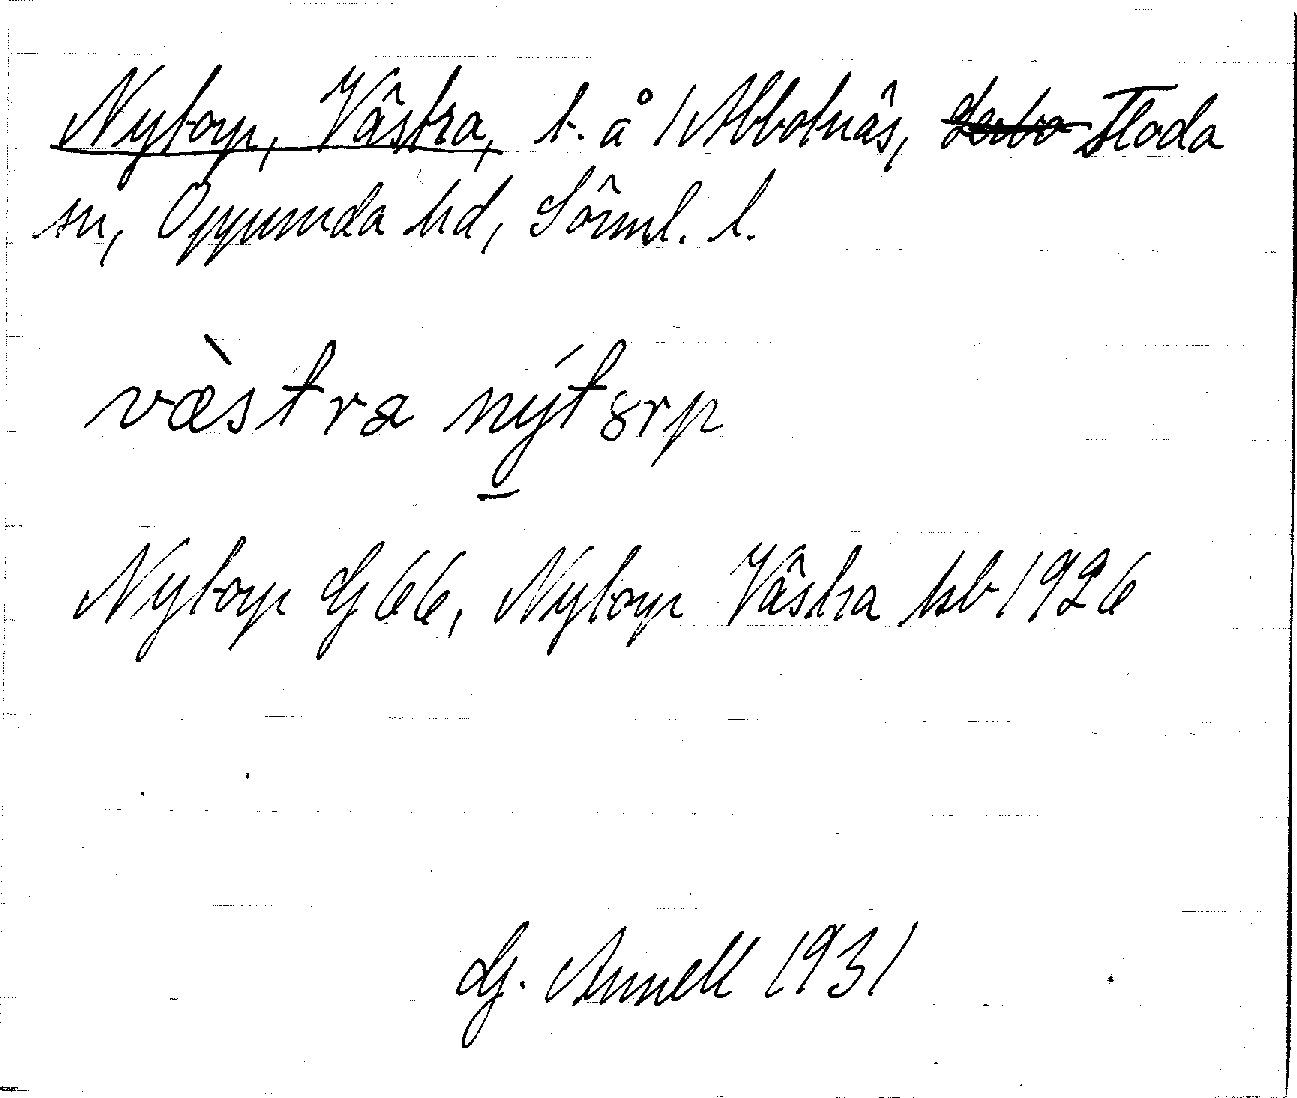 Nytorp, Västra, t. å 1 Abbotnäs, Floda
sn, Oppunda hd, Sörml. l.
væ̀stra nýtȣrp
Nytorp G 66, Nytorp Västra hsb 1926
G. Annell 1931